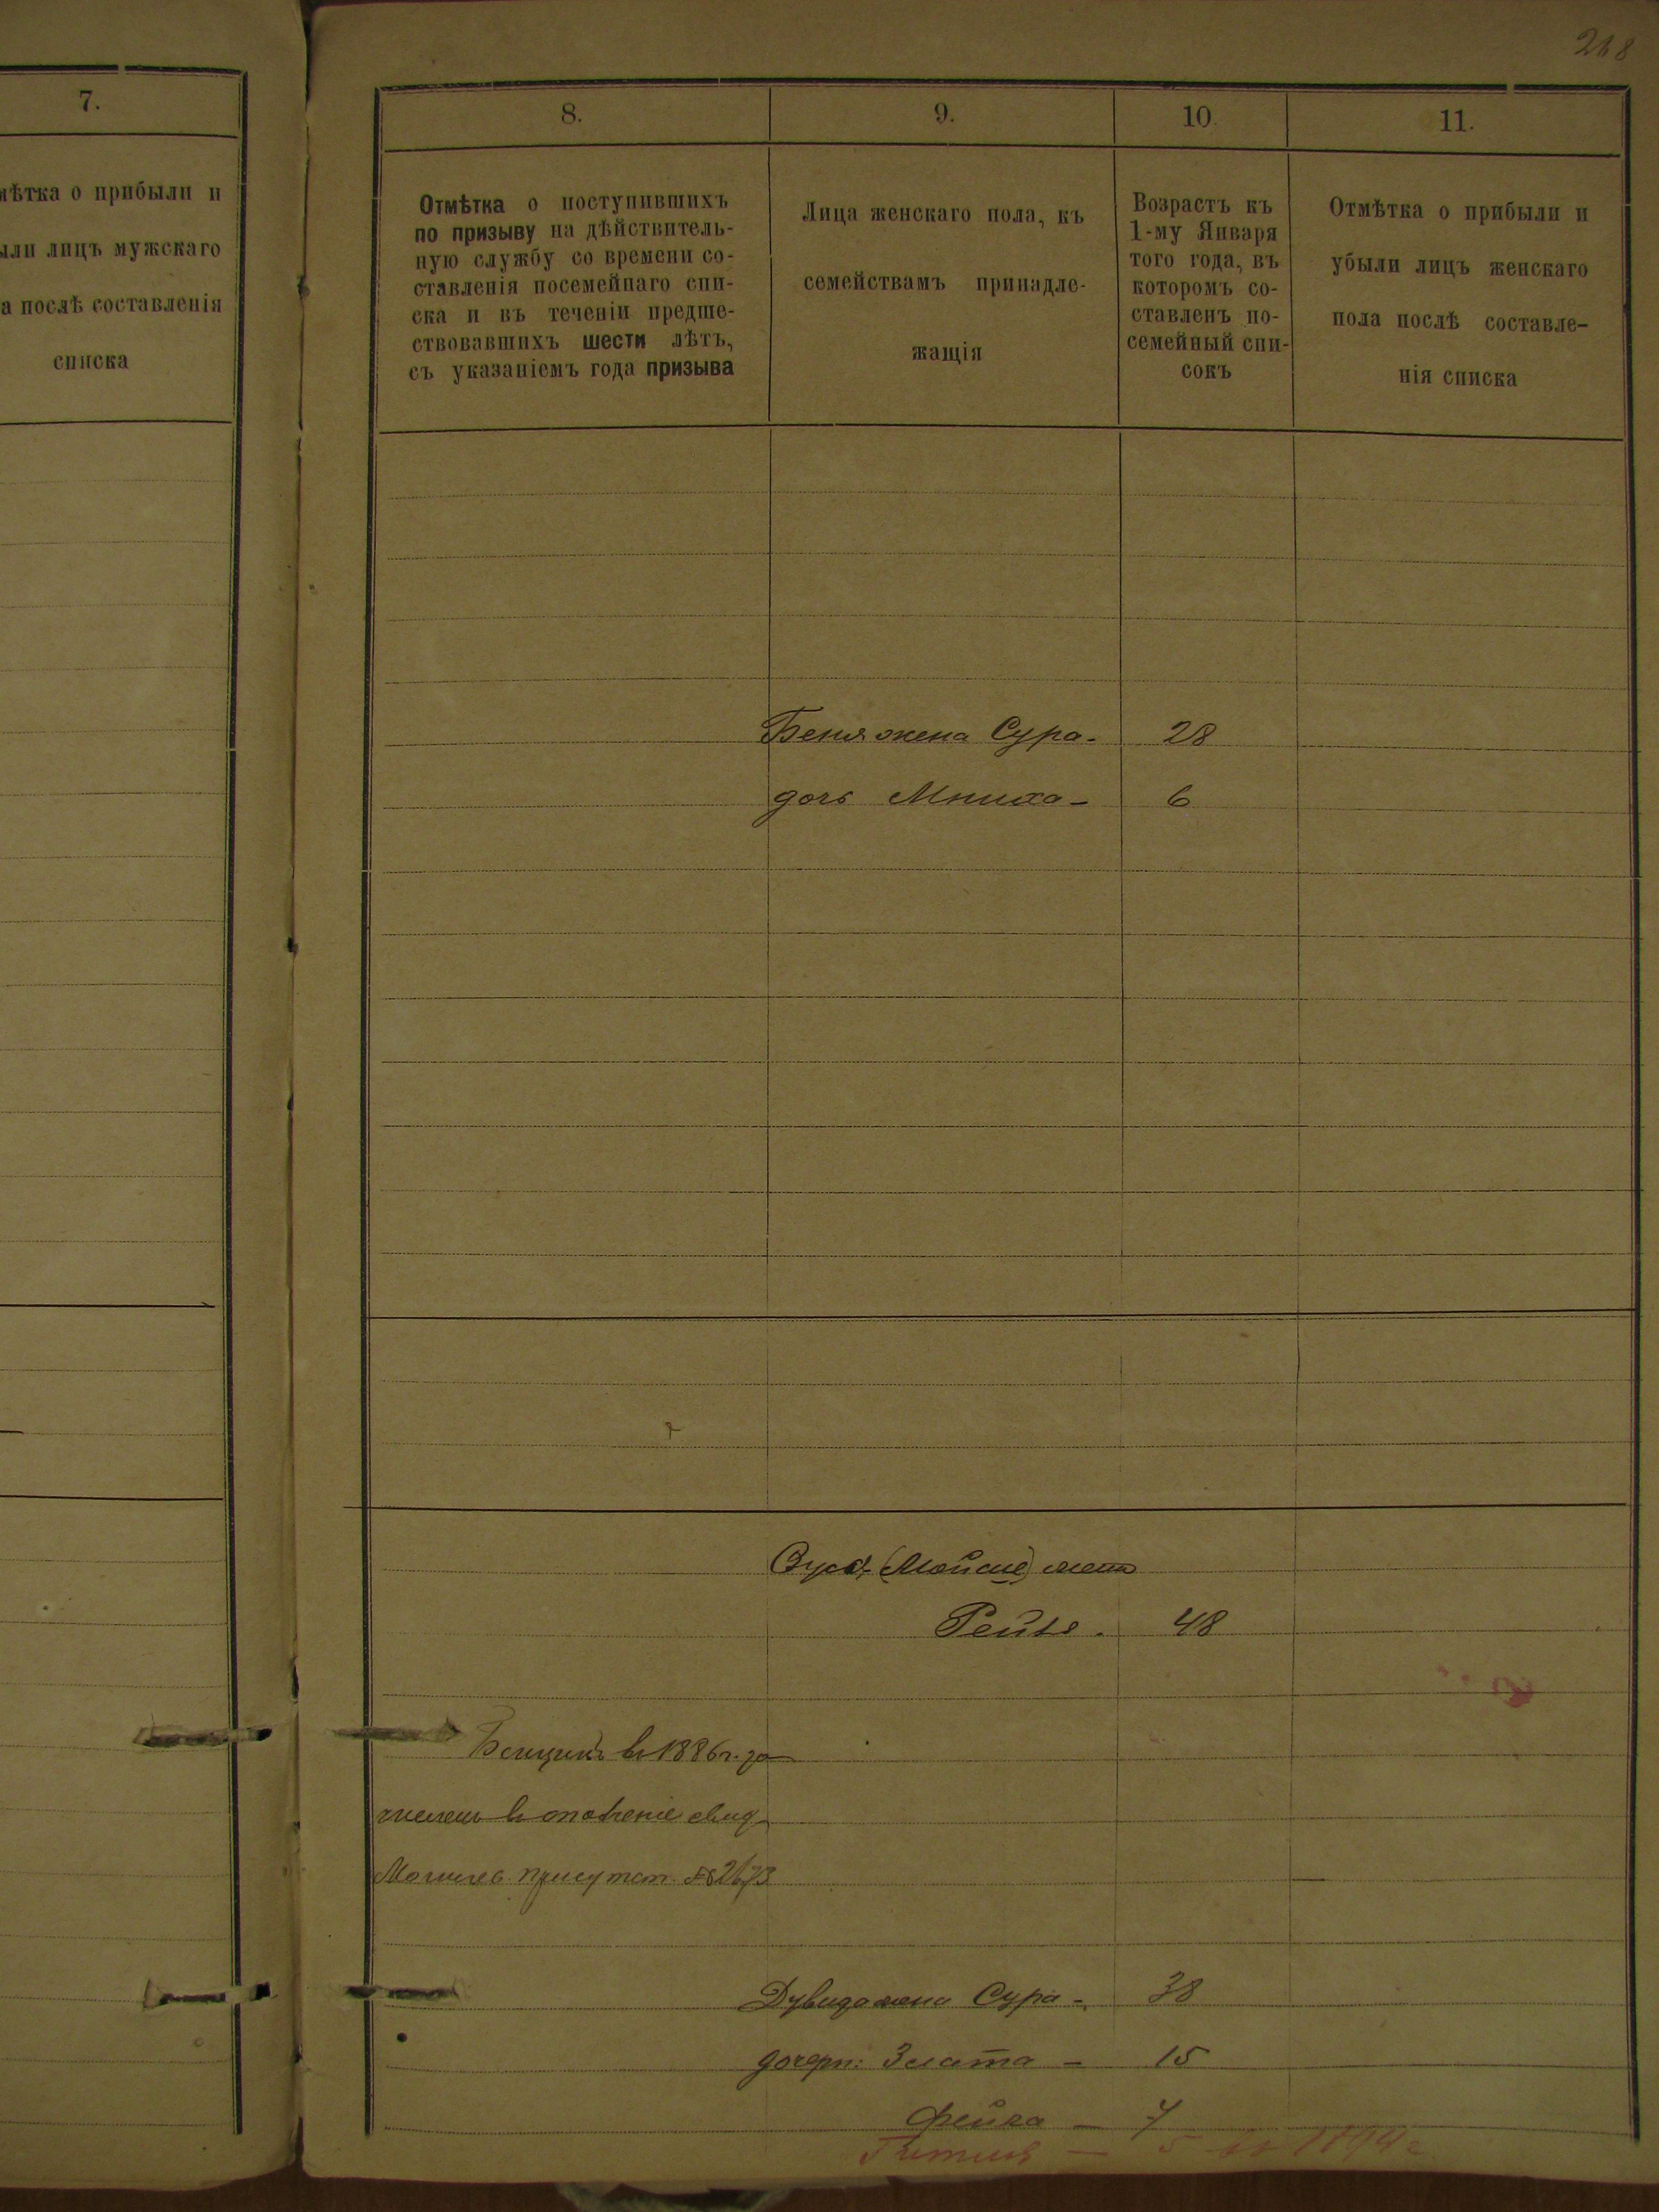 268
7.
мѣтка о прибыли и
ыли лицъ мужскаго
а послѣ составленія
списка
8.
9.
10.
11.
Отмѣтка о поступившихъ
по призыву на дѣйствитель-
ную службу со времени со-
ставленія посемейнаго спи-
ска и въ теченіи предше-
ствовавшихъ шести лѣтъ,
съ указаніемъ года призыва
Лица женскаго пола, къ
семействамъ принадле-
жащія
Возрастъ къ
1-му Января
того года, въ
которомъ со-
ставленъ по-
семейный спи-
сокъ
Отмѣтка о прибыли и
убыли лицъ женскаго
пола послѣ составле-
нія списка
Беня жена Сура - 28
дочь Мниха - 6
(Мойсие)
48
въ 1886 г. за
въ ополченіе свид
Могилев. присутст. №
Дувида жена Сура - 38
дочери: Злата - 15
Фейга - 7
5